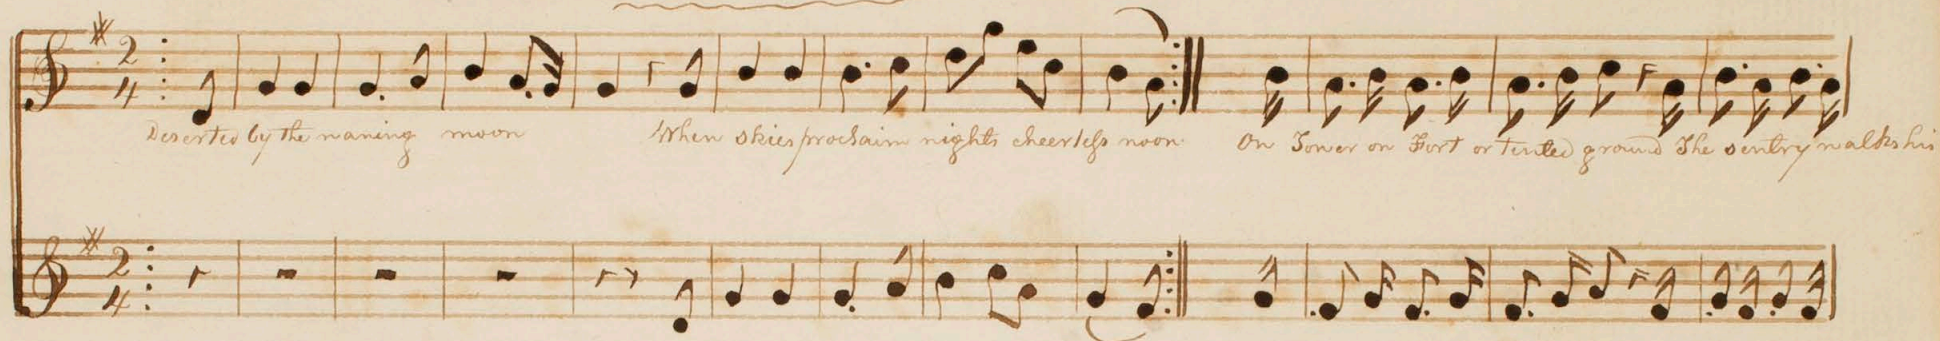 2
4
Deserted by the waning moon When skies proclaim nights cheerless noon On Tower on Fort or tented ground The sentry walks his
2
4